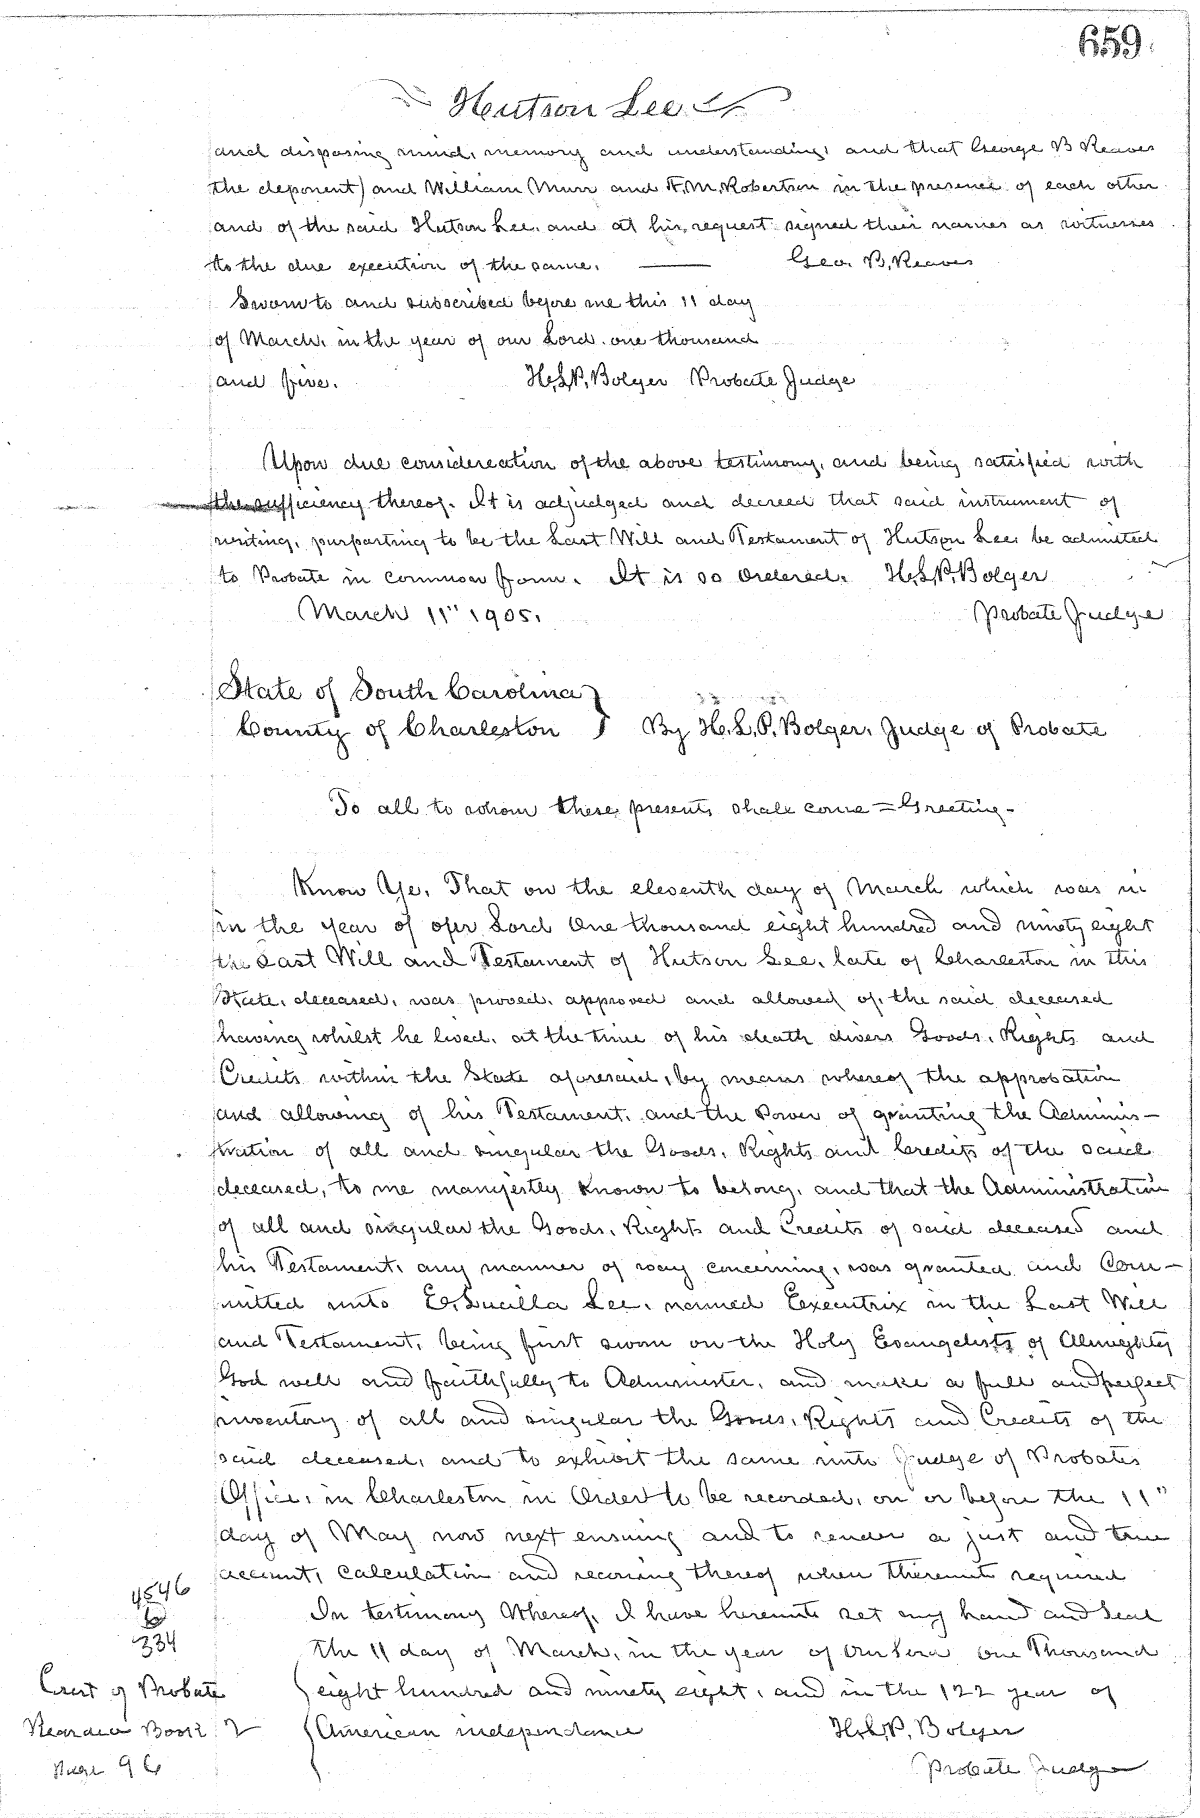 659
Hutson Lee
and disposing mind, memory and understanding, and that George B Reaves
the deponent) and William Murr and F. M. Robertson in the presence of each other
and of the said Hutson Lee, and at his request signed their names as witnesses
to the due execution of the same. — Geo. B. Reaves
Sworn to and subscribed before me this 11 day
of March, in the year of our Lord one thousand
and five. H. L. P. Bolger Probate Judge
Upon due consideration of the above testimony, and being satisfied with
the sufficiency thereof. It is adjudged and decreed that said instrument of
writing, purporting to be the Last Will and Testament of Hutson Lee, be admitted
to Probate in common form. It is so Ordered. H. L. P. Bolger
March 11" 1905. Probate Judge
State of South Carolina }
County of Charleston } By H. L. P. Bolger, Judge of Probate
To all to whom these presents shall come = Greeting -
Know Ye, That on the eleventh day of March which was in
in the year of our Lord One thousand eight hundred and ninety eight
the Last Will and Testament of Hutson Lee, late of Charleston in this
State, deceased, was proved, approved and allowed of, the said deceased
having whilst he lived, at the time of his death divers Goods, Rights and
Credits within the State aforesaid, by means whereof the approbation
and allowing of his Testament, and the Power of granting the Adminis-
tration of all and singular the Goods, Rights and Credits of the said
deceased, to me manifestly known to belong, and that the Administration
of all and singular the Goods, Rights and Credits of said deceased and
his Testament, any manner of way concerning, was granted and Com-
mitted unto E. Lucilla Lee, named Executrix in the Last Will
and Testament, being first sworn on the Holy Evangelists of Almighty
God well and faithfully to Administer, and make a full and perfect
inventory of all and singular the Goods, Rights and Credits of the
said deceased, and to exhibit the same unto Judge of Probates
Office, in Charleston in Order to be recorded, on or before the 11"
day of May now next ensuing and to render a just and true
account, calculation and reconing thereof when thereunto required
In testimony Whereof, I have hereunto set my hand and Seal
the 11 day of March, in the year of Our Lord One Thousand
eight hundred and ninety eight, and in the 122 year of
American independance H. L. P. Bolger
Probate Judge
4546
6
334
Court of Probate
Book 2
page 96